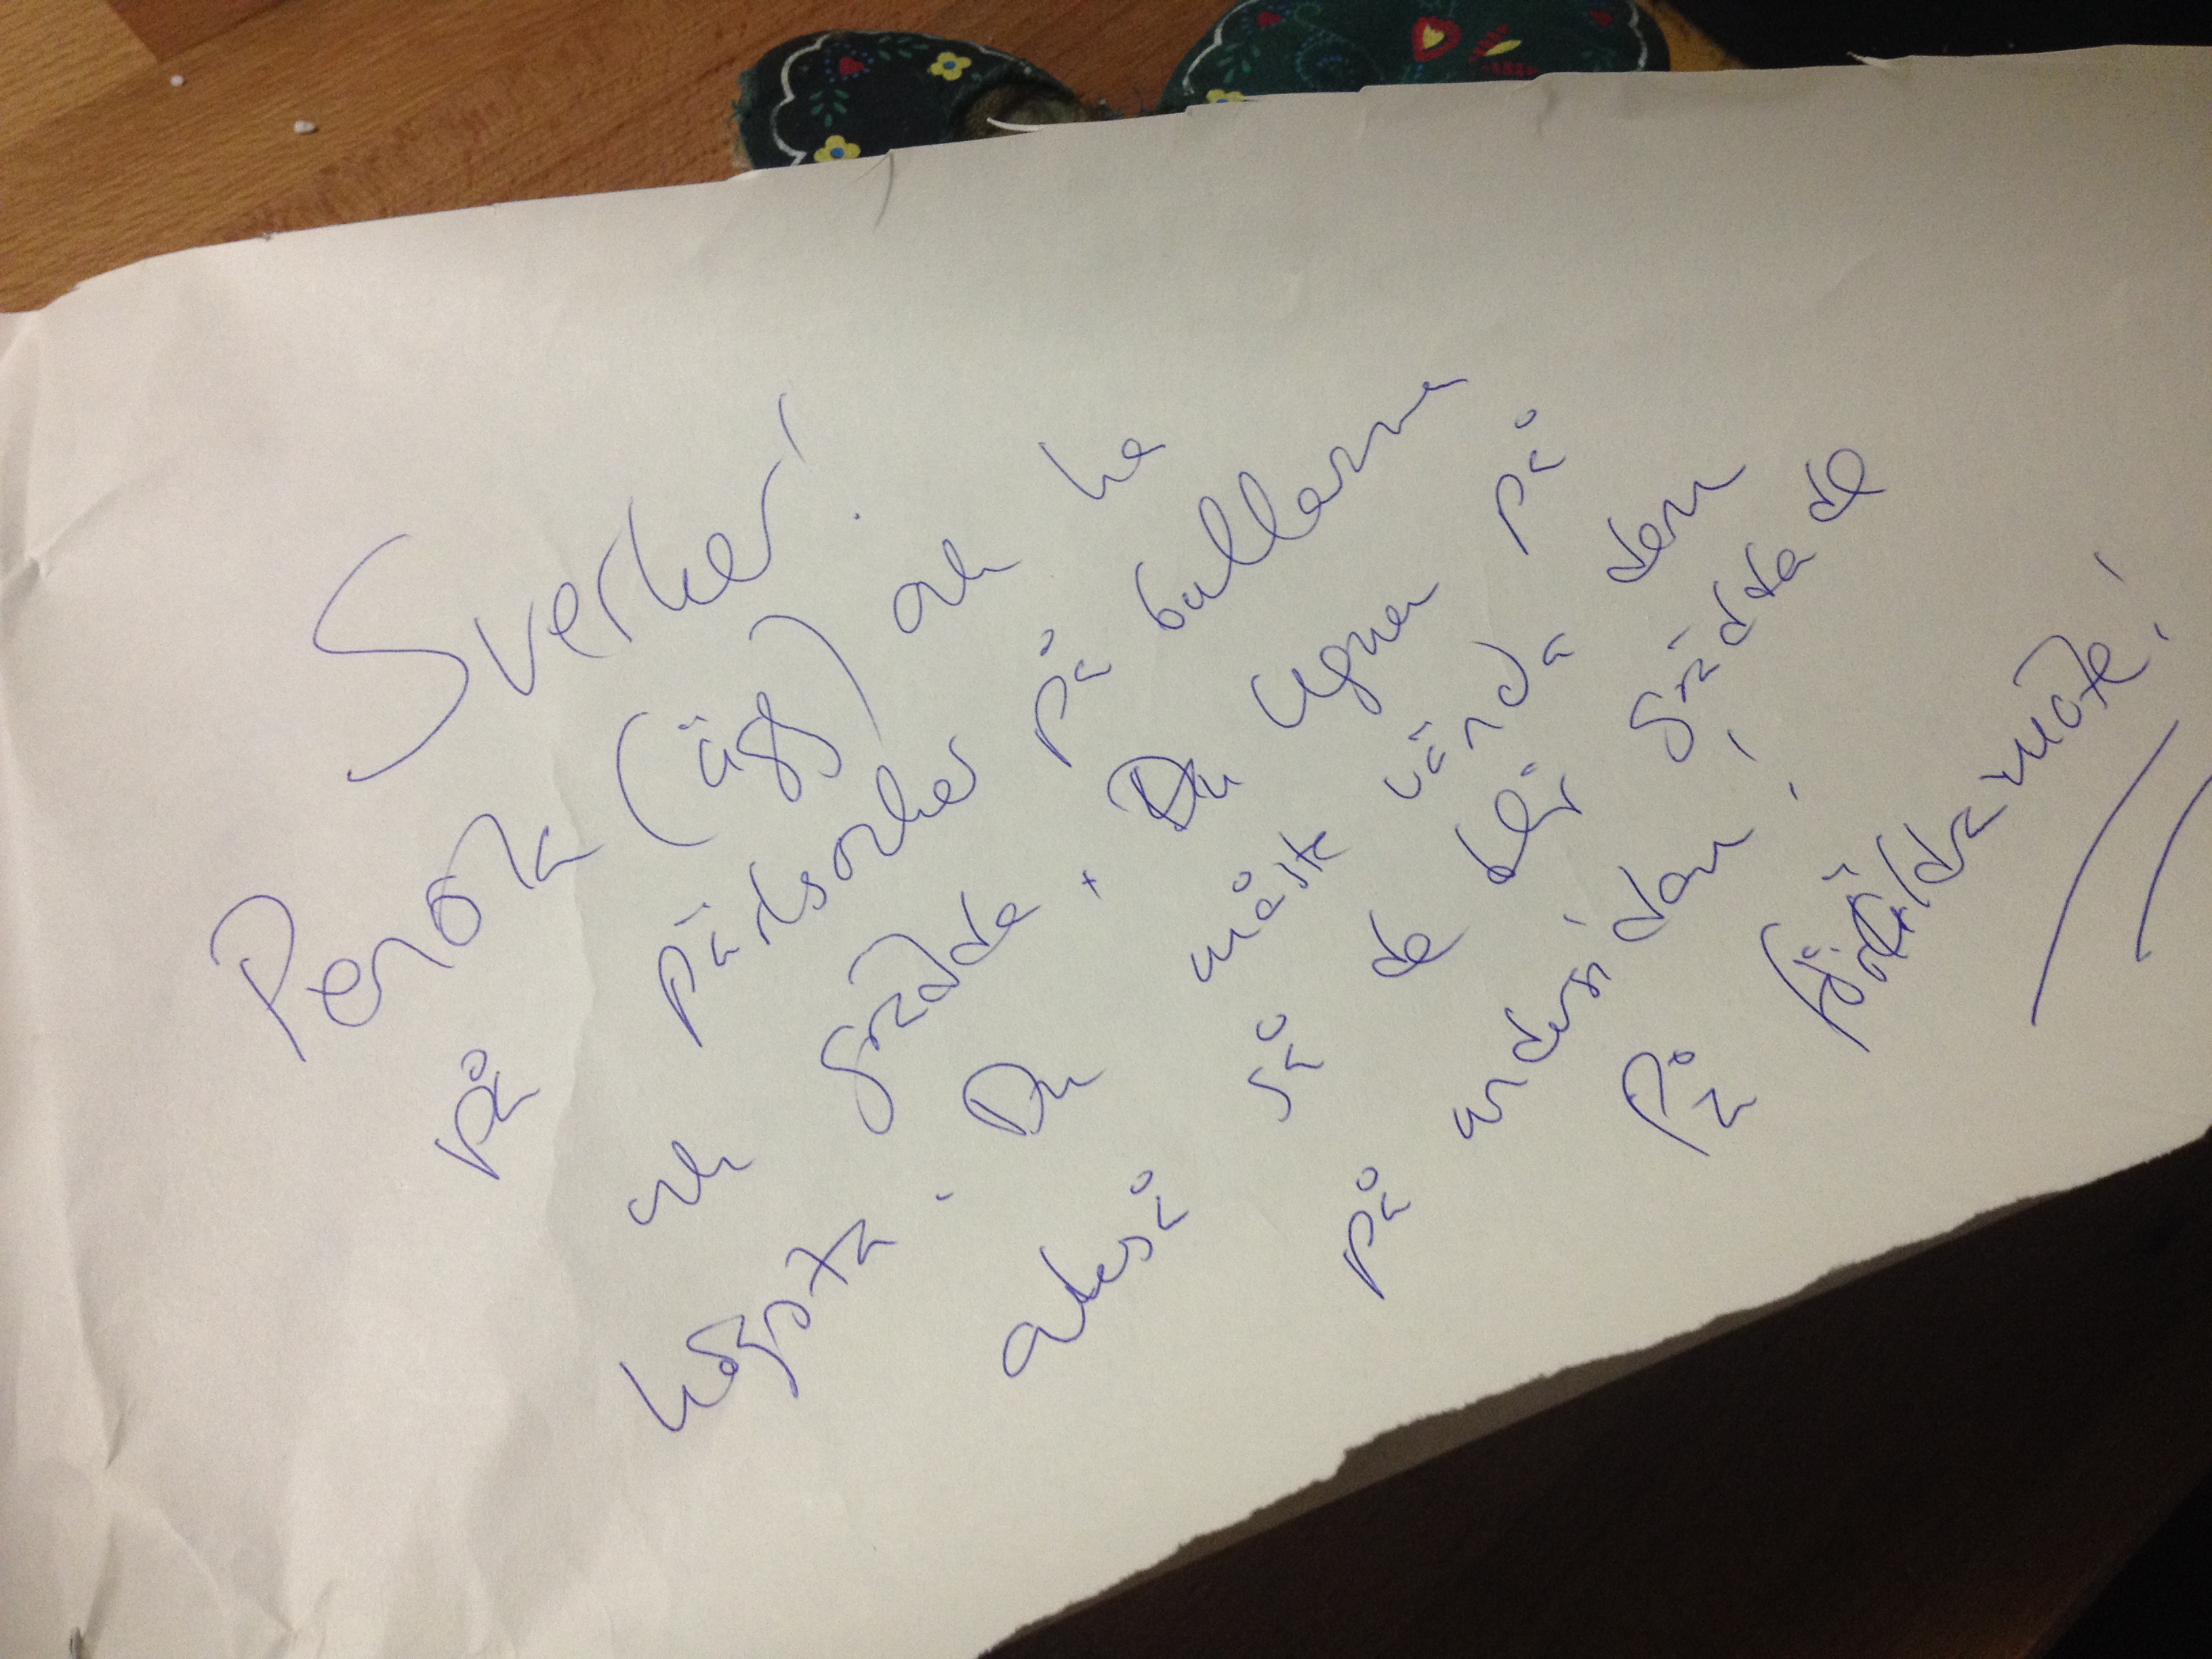 Sverker!
Pensla (ägg) och ha
på pärlsocker på bullarna
och grädda i Du ugnen på
högsta. Du måste vända dem
också så de blir gräddade
på undersidan!
På föräldramöte!